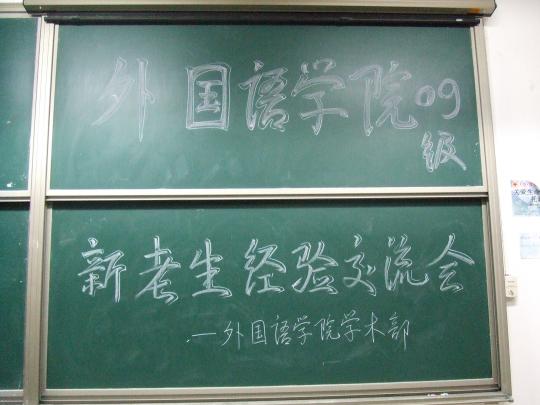 外国语学院09
级
新老生经验交流会
——外国语学院学术部
关爱生命